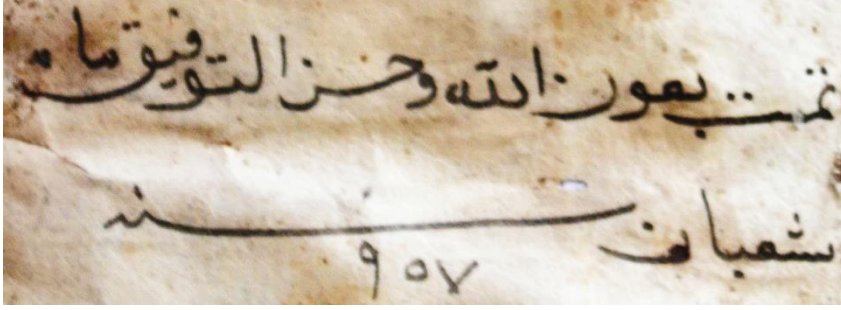 تمت بعون الله وحسن التوفيق ماه
شعبان سنه
٩٥٧